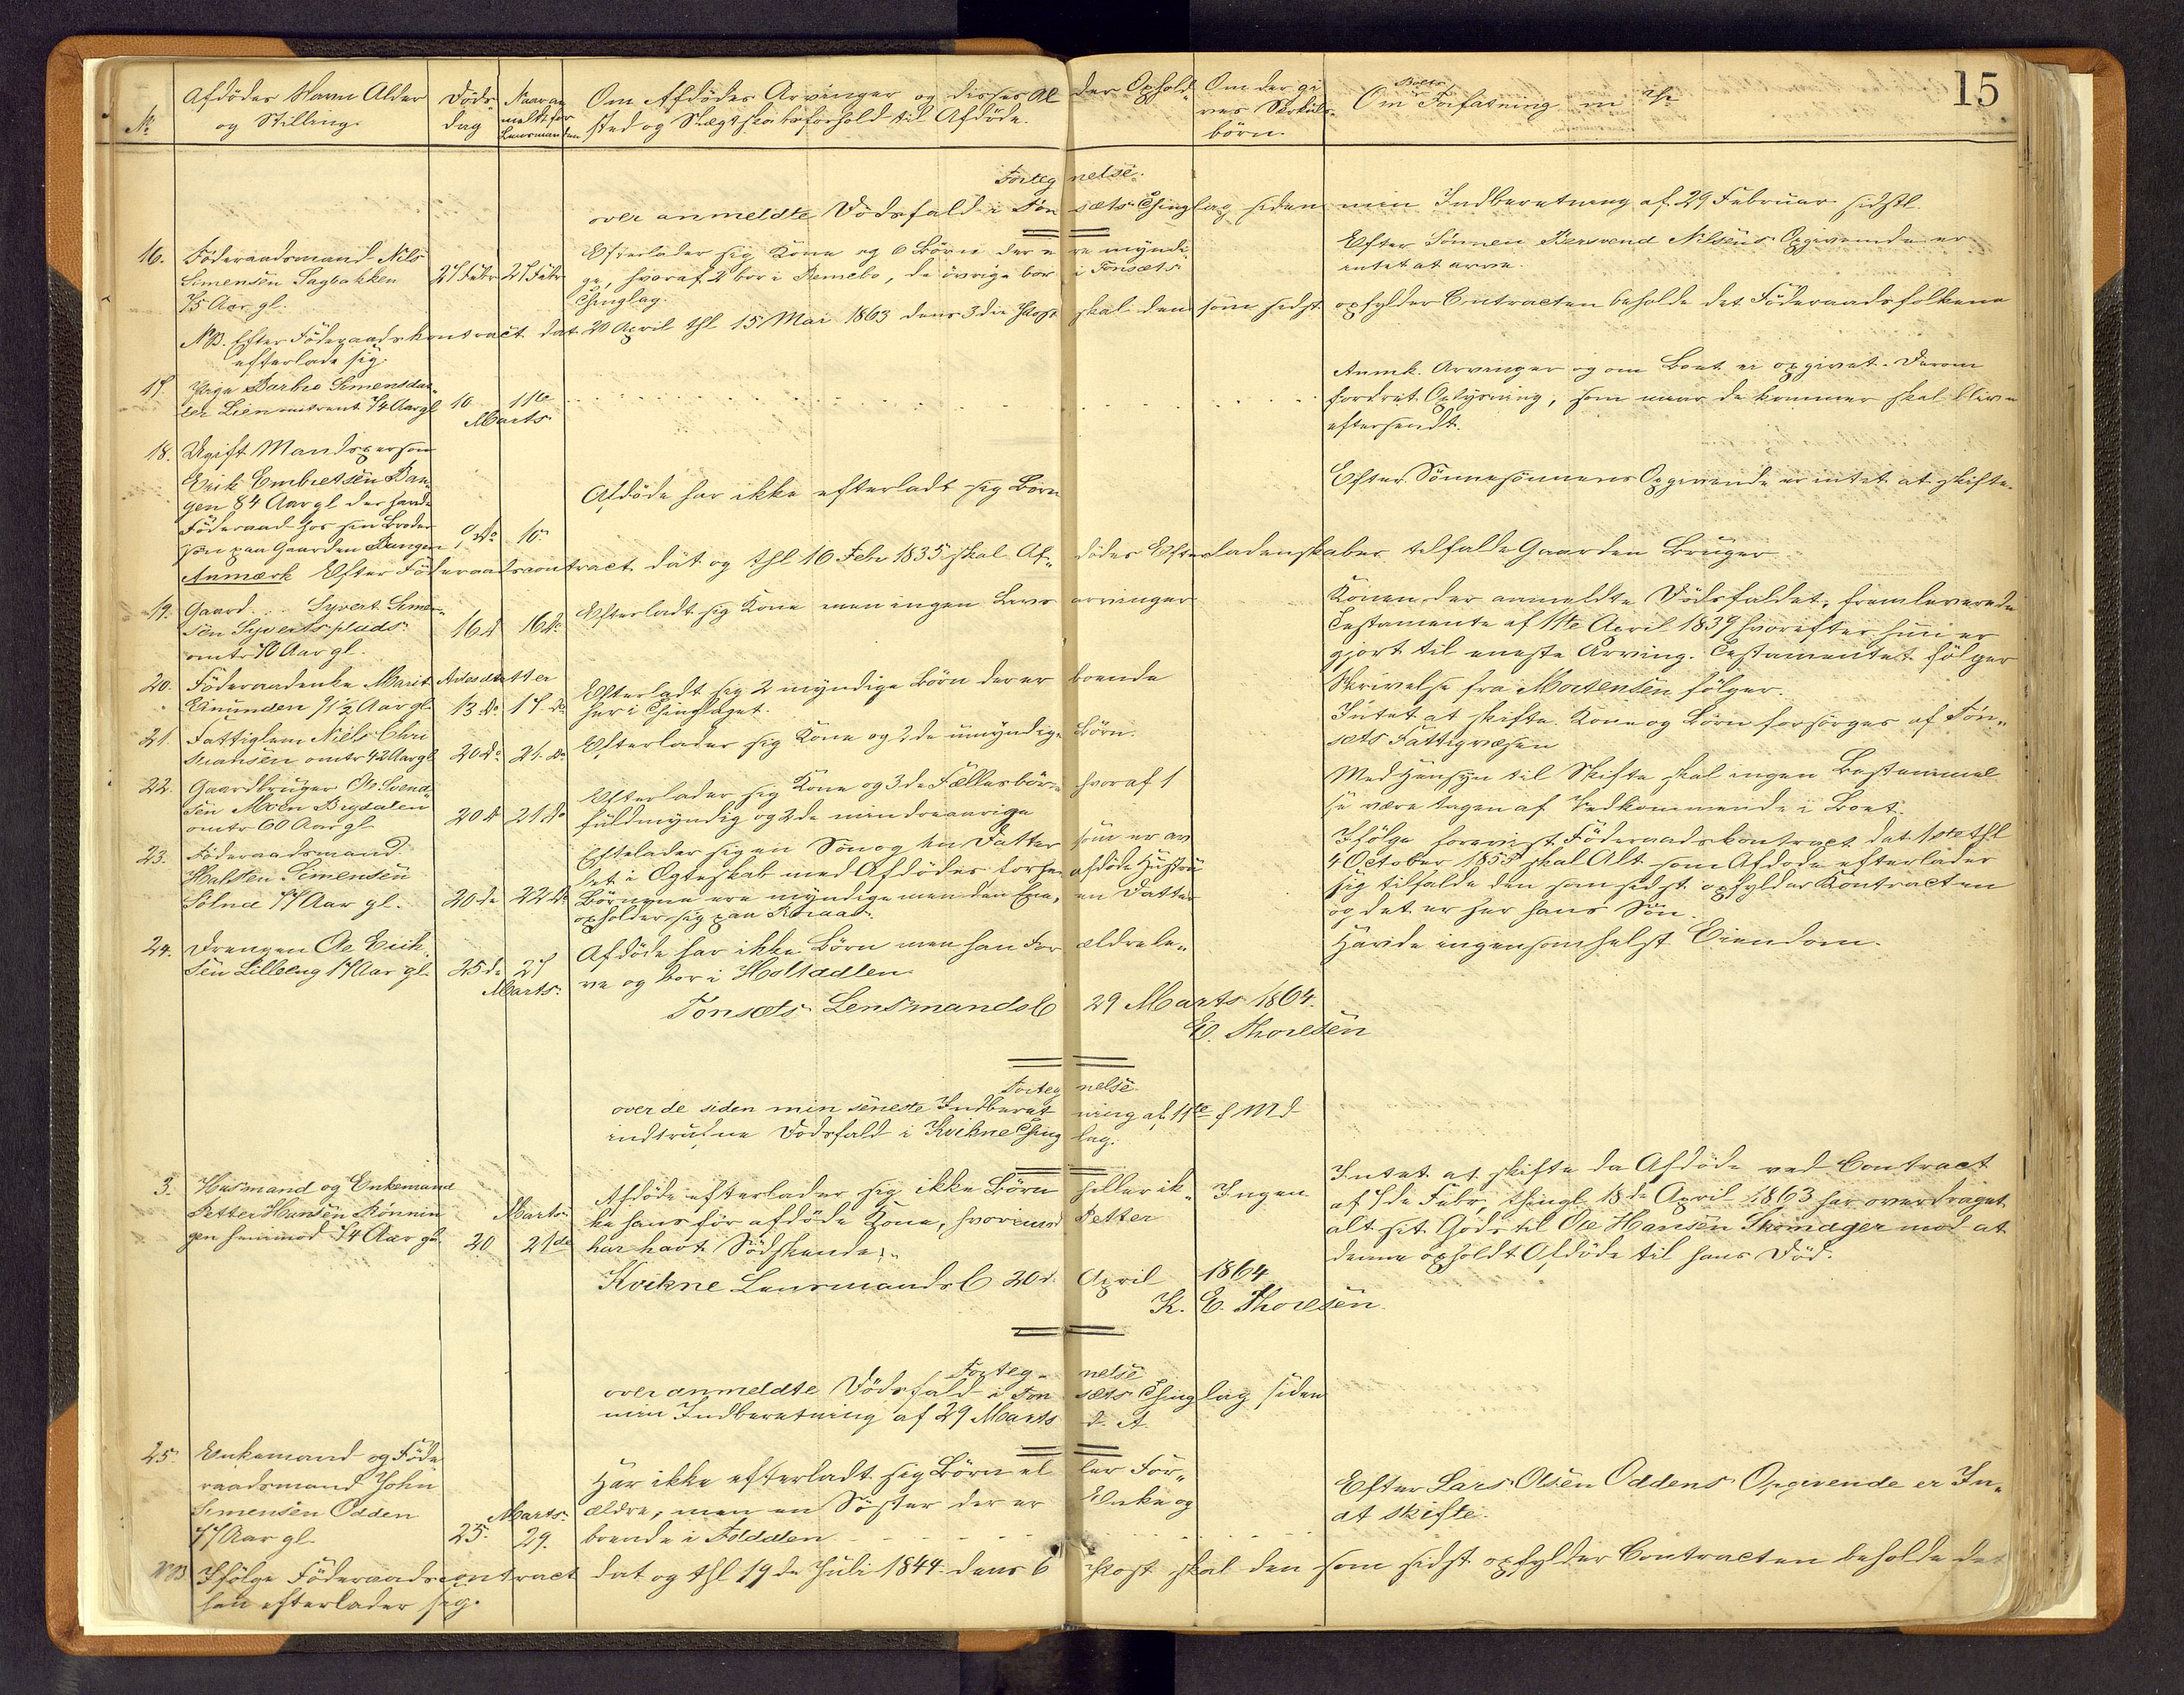 15
No
Afdödes Navn Alder
og Stilling.
Döds-
dag
Naar an
meldt for
Lensmanden
Om Afdödes Arvinger og disses Al der Ophold-
sted og Slægtskabsforhold til Afdöde.
Om der gi
ves Særkuls-
börn.
Boets
Om Forfatning m
Forteg nelse.
over anmeldte Dödsfald i Tön sæts Thinglag siden min Indberetning af 29 Februar sidstl
16. Föderaadsmand Nils
Simensen Sagbakken
75 Aar gl.
27 Febr 27 Febr
Efterlader sig Kone og 6 Börn der e re myndi-
ge, hvoraf 2 bor i , de övrige bor i Tönsæts
Thinglag.
Efter Sönnen Bersvend Nilsens Opgivende er
intet at arve.
NB. Efter Föderaadskontract dat 20 April thl 15 Mai 1863 dens 3die Post skal den som sidst opfylder Contracten beholde det Föderaadsfolkene
efterlade sig.
17. Pige Barbro Simensdat-
ter Lien omtrent 74 Aar gl
10 11te
Marts
Anmk. Arvinger og om Boet ei opgivet. Derom
fordret Oplysning, som naar de kommer skal blive
eftersendt.
18. Ugift Mandsperson
Erik Embretsen Ban-
gen 84 Aar gl der havde
Föderaad hos sin Broder
sön paa Gaarden Bangen
9 do 10
Afdöde har ikke efterladt sig Börn
Efter Sönnesönnens Opgivende er intet at skifte.
Anmærk Efter Föderaadscontract dat og thl 16 Febr 1835 skal Af- dödes Efterladenskaber tilfalde Gaarden Bruger
19. Gaard... Syvert Simen-
sen Syvertsplads
omtr 70 Aar gl.
16 d 16 do
Efterladt sig Kone men ingen Livs arvinger
Konen der anmeldte Dödsfaldet, fremleverede
Testamente af 11te April 1839 hvorefter hun er
gjort til eneste Arving. Testamentet fölger
20. Föderaadenke Marit Arnesdatter
Enunden 71½ Aar gl
13 do 17 do
Efterladt sig 2 myndige Börn der er boende
her i Thinglaget.
Skrivelse fra Mortensen fölger.
21. Fattiglem Niels Chri
stiansen omtr 42 Aar gl
20 do 21 do
Efterlader sig Kone og 2de umyndige Börn.
Intet at skifte. Kone og Börn forsörges af Tön-
sets Fattigvæsen
22. Gaardbruger Ole Svend-
sen Moen Brydalen
omtr 60 Aar gl
20 do 21 do
Efterlader sig Kone og 3de Fællesbörn hvoraf 1
fuldmyndig og 2de mindreaarige
Med Hensyn til Skifte skal ingen Bestemmel
se være tagen af Vedkommende i Boet.
23. Föderaadsmand
Halsten Simensen
Sölna 77 Aar gl.
20 de 22 do
Efterlader sig en Sön og en Datter som er av
let i Egteskab med Afdödes forhen afdöde Hustru
Börnene ere myndige men den Ene, en Datter
opholder sig paa
Ifölge forevist Föderaadskontract dat 1ste thl
4 October 1855 skal Alt som Afdöde efterlader
sig tilfalde den som sidst opfylder Kontracten
og det er her hans Sön.
24. Drengen Ole Erik-
sen Lilleeng 17 Aar gl.
25 de 27
Marts.
Afdöde har ikke Börn men han For ældre le-
ve og bor i Holtaalen
Havde ingensomhelst Eiendom.
Tönsets Lensmandsb 29 Marts 1864.
E. Thoresen
Forteg nelse
over de siden min seneste Indberet ning af 11te f Md
indtrufne Dödsfald i Kvikne Thing lag.
3. Husmand og Enkemand
Petter Hansen Rönnin
gen henimod 74 Aar gl.
Marts
20 21de
Afdöde efterlader sig ikke Börn heller ik-
ke hans för afdöde Kone, hvorimod Petter
har havt Södskende.
Ingen
Intet at skifte da Afdöde ved Contract
af 7de Febr, thingl 18de April 1863 har overdraget
alt sit Gods til Ole Hansen Skomager mod at
denne opholdt Afdöde til hans Död.
Kvikne Lensmandsb 20d. April 1864
K. E. Thoresen.
Forteg- nelse
over anmeldte Dödsfald i Tön sæts Thinglag siden
min Indberetning af 29 Marts d. A
25. Enkemand og Föde
raadsmand John
Simensen Odden
77 Aar gl.
Marts.
25. 29.
Har ikke efterladt sig Börn el ler For-
ældre, men en Söster der er Enke og
boende i Folddalen
Efter Lars Olsen Oddens Opgivende er In-
at skifte.
NB Ifölge Föderaadscontract dat og thl 19de Juli 1844 dens 6 Post skal den som sidst opfylder Contracten beholde det
han efterlader sig.